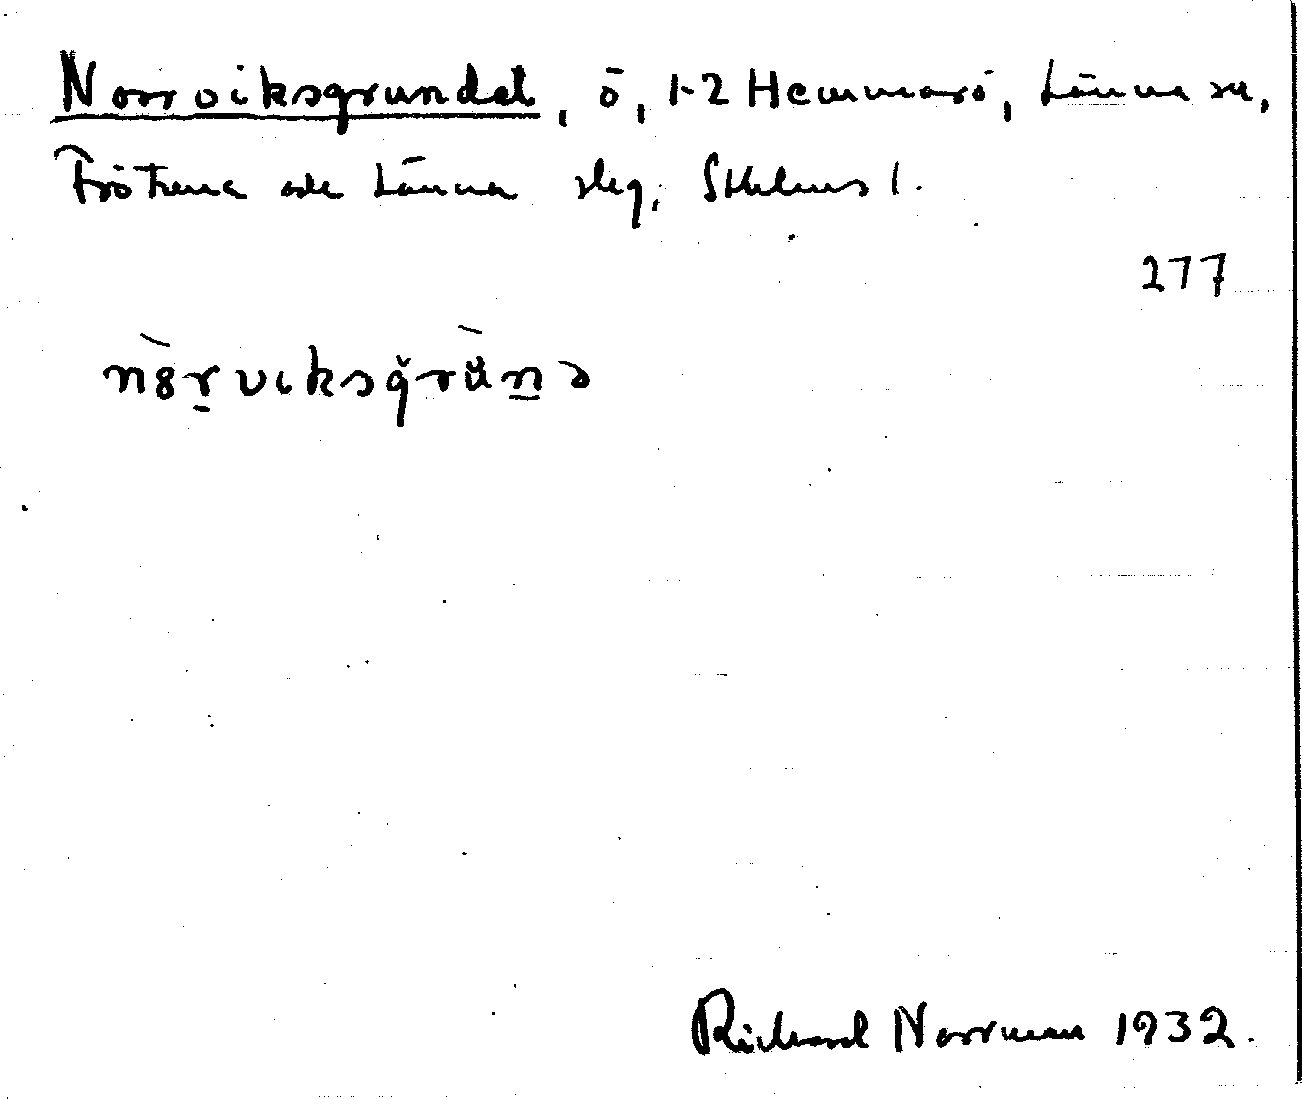 Norrviksgrundet, ö, 1-2 Hemmarö, Länna sn,
Frötuna och Länna slg, Sthlms l.
277
Richard Norrman 1932.